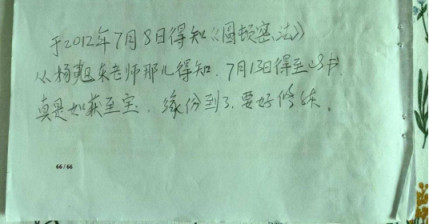 于2012年7月8日得知《圆顿密法》
从杨祖东老师那儿得知.7月13日得至此书
真是如获至宝.缘份到了.要好修练.
66/66